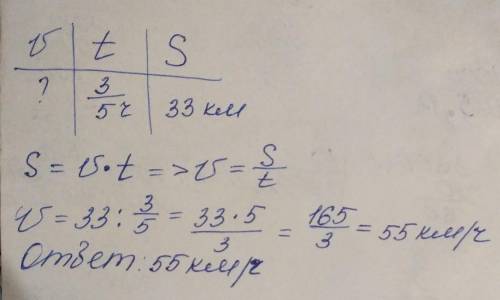 v | t | S
? | 3/5 ч | 33 км
S = v·t => v = S/t
v = 33 : 3/5 = 33·5/3 = 165/3 = 55 км/ч
Ответ: 55 км/ч